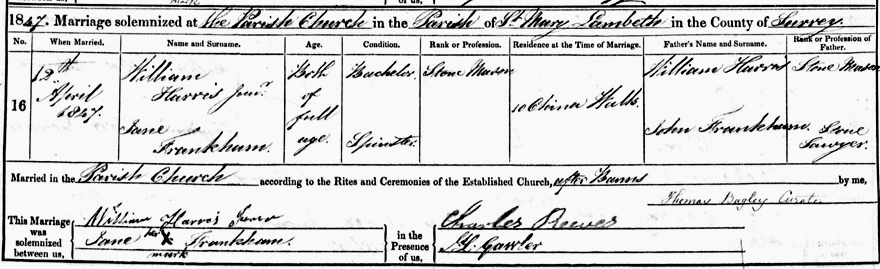 1847. Marriage solemnized at the Parish Church in the Parish of St. Mary Lambeth in the County of Surrey.
No. When Married. Name and Surname. Age. Condition. Rank or Profession. Residence at the Time of Marriage. Father's Name and Surname. Rank or Profession of Father.
16
12th April 1847.
William Harris Junr.
Both of full age.
Bachelor
Stone Mason
10 China Walk
William Harris
Stone Mason
Jane Frankham.
Spinster.
John Frankham.
Stone Sawyer.
Married in the Parish Church according to the Rites and Ceremonies of the Established Church, after Banns by me,
Thomas Bagley Curate
This Marriage was solemnized between us,
William Harris Junr
Jane her X mark Frankham.
in the Presence of us,
Charles Reeves
Gawler